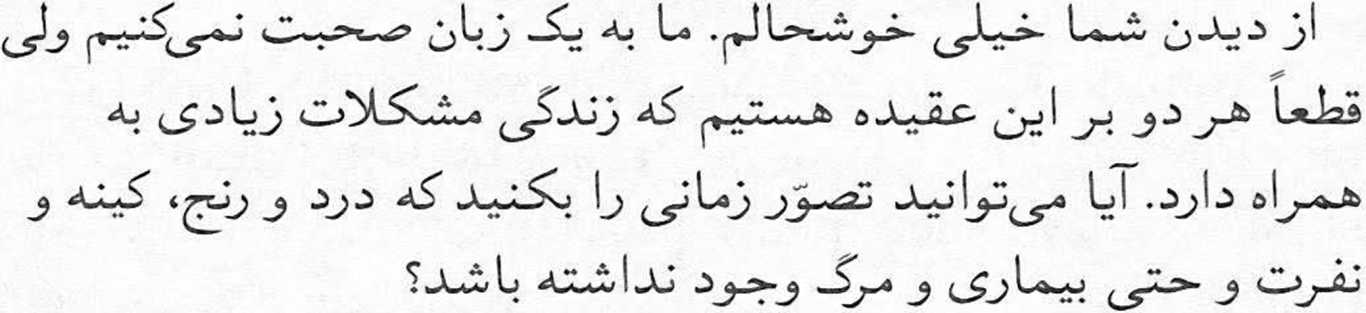 از دیدن شما خیلی خوشحالم. ما به یک زبان صحبت نمی‌کنیم ولی
قطعاً هر دو بر این عقیده هستیم که زندگی مشکلات زیادی به
همراه دارد. آیا می‌توانید تصوّر زمانی را بکنید که درد و رنج، کینه و
نفرت و حتی بیماری و مرگ وجود نداشته باشد؟